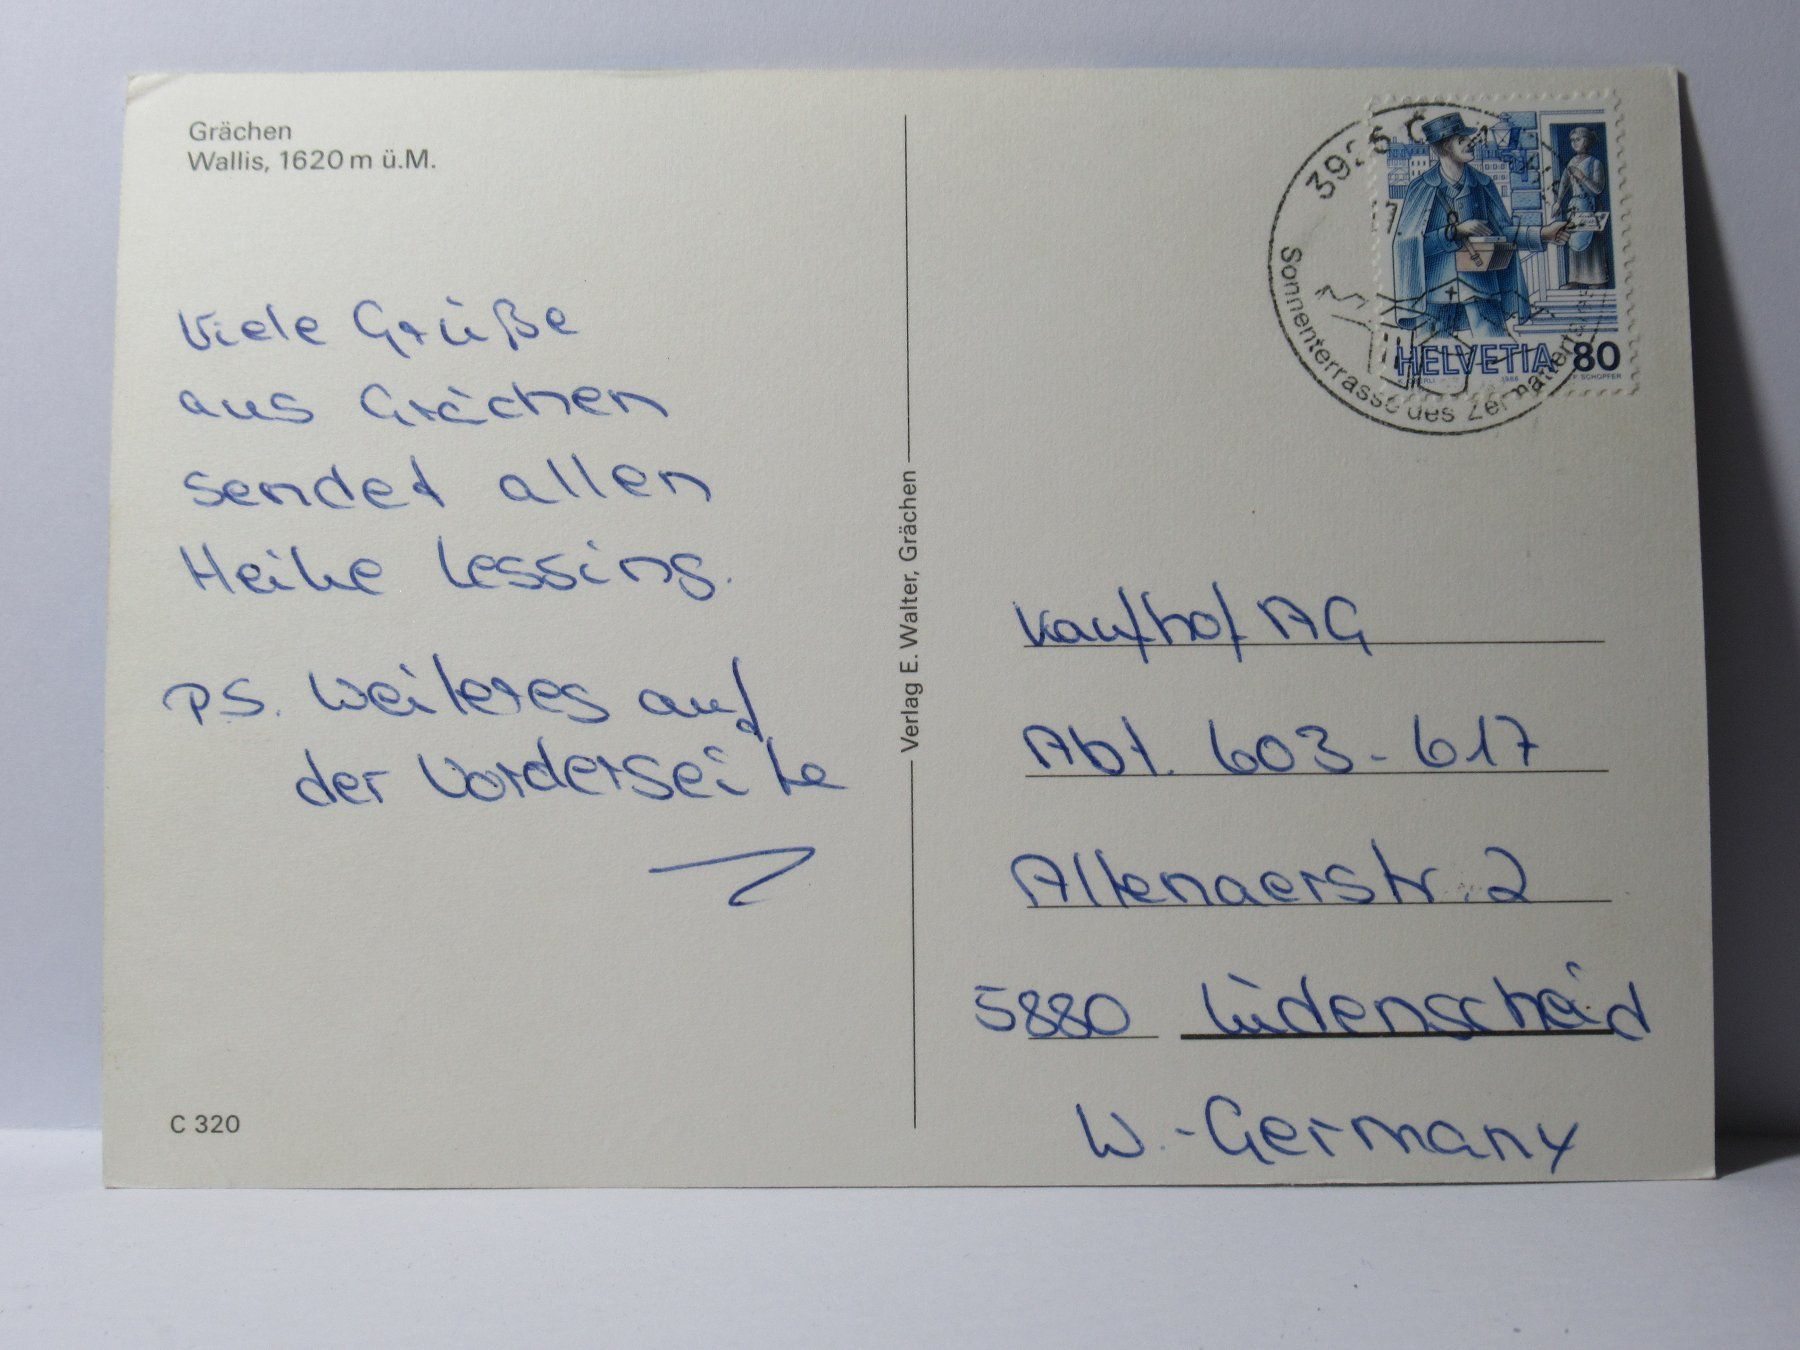 Grächen
Wallis, 1620 m ü.M.
Viele Grüße
aus Grächen
sendet allen
Heike Lessing.
PS. Weiteres auf
der Vorderseite
C 320
Verlag E. Walter, Grächen
Sonnenterrasse des Zermattertales
HELVETIA 80
1986
Kaufhof AG
Abt. 603-617
Altenaerstr. 2
5880 Lüdenscheid
W.-Germany